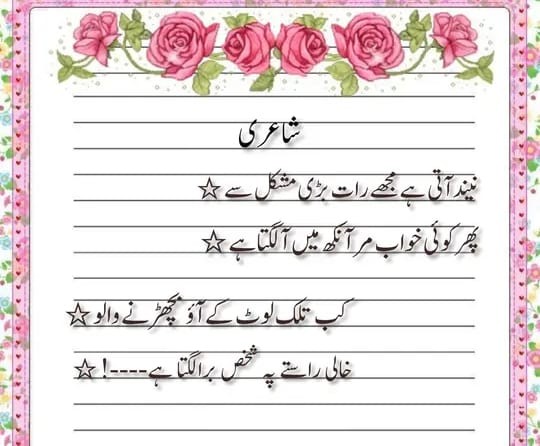 شاعری
نیند آتی ہے مجھے رات بڑی مشکل سے ☆
پھر کوئی خواب مر آنکھ میں آلگتا ہے ☆
کب تلک لوٹ کے آؤ بچھڑنے والو ☆
خالی راستے پہ شخص برا لگتا ہے----! ☆